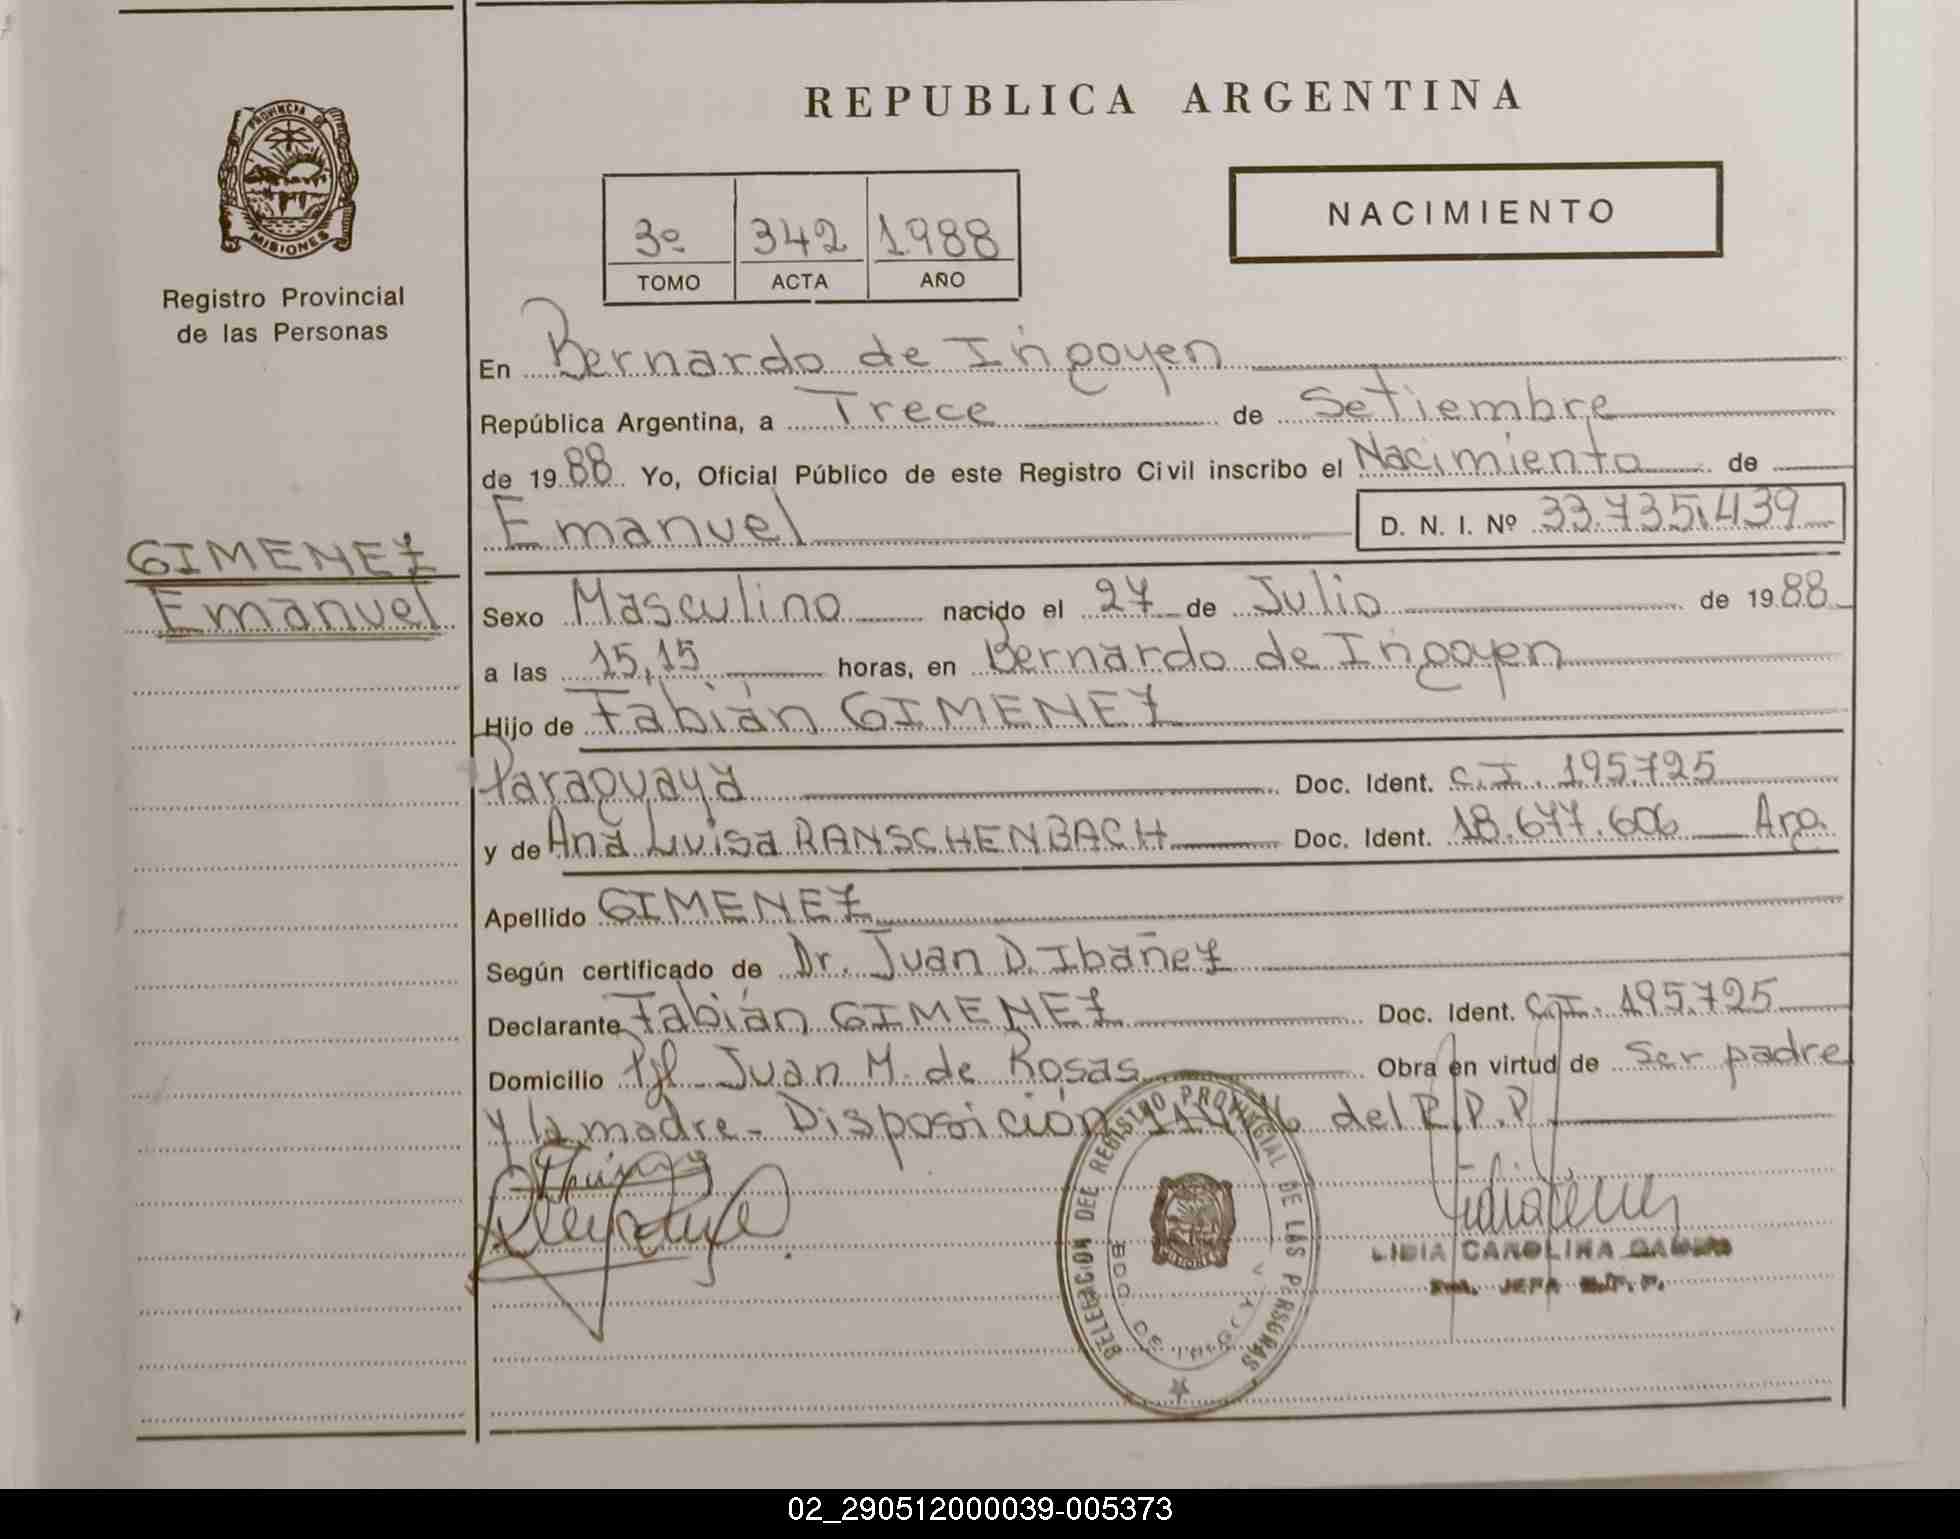 REPUBLICA ARGENTINA
PROVINCIA DE
MISIONES
Registro Provincial
de las Personas
3º 342 1988
TOMO ACTA AÑO
NACIMIENTO
En Bernardo de Irigoyen
República Argentina, a Trece de Setiembre
de 1988 Yo, Oficial Público de este Registro Civil inscribo el Nacimiento de
Emanuel D. N. I. Nº 33.735.439
GIMENEZ
Emanuel
Sexo Masculino nacido el 27 de Julio de 1988
a las 15,15 horas, en Bernardo de Irigoyen
Hijo de Fabián GIMENEZ
Paraguaya Doc. Ident. C.I. 195.725
y de Ana Luisa RANSCHENBACH Doc. Ident. 18.677.606 Arg.
Apellido GIMENEZ
Según certificado de Dr. Juan D. Ibañez
Declarante Fabián GIMENEZ Doc. Ident. C.I. 195.725
Domicilio Pje Juan M. de Rosas Obra en virtud de Ser padre
y la madre - Disposición del R.P.P
DELEGACION DEL REGISTRO PROVINCIAL DE LAS PERSONAS
BDO. DE IRIGOYEN
LIDIA CAROLINA
JEFA R.P.P.
02_290512000039-005373